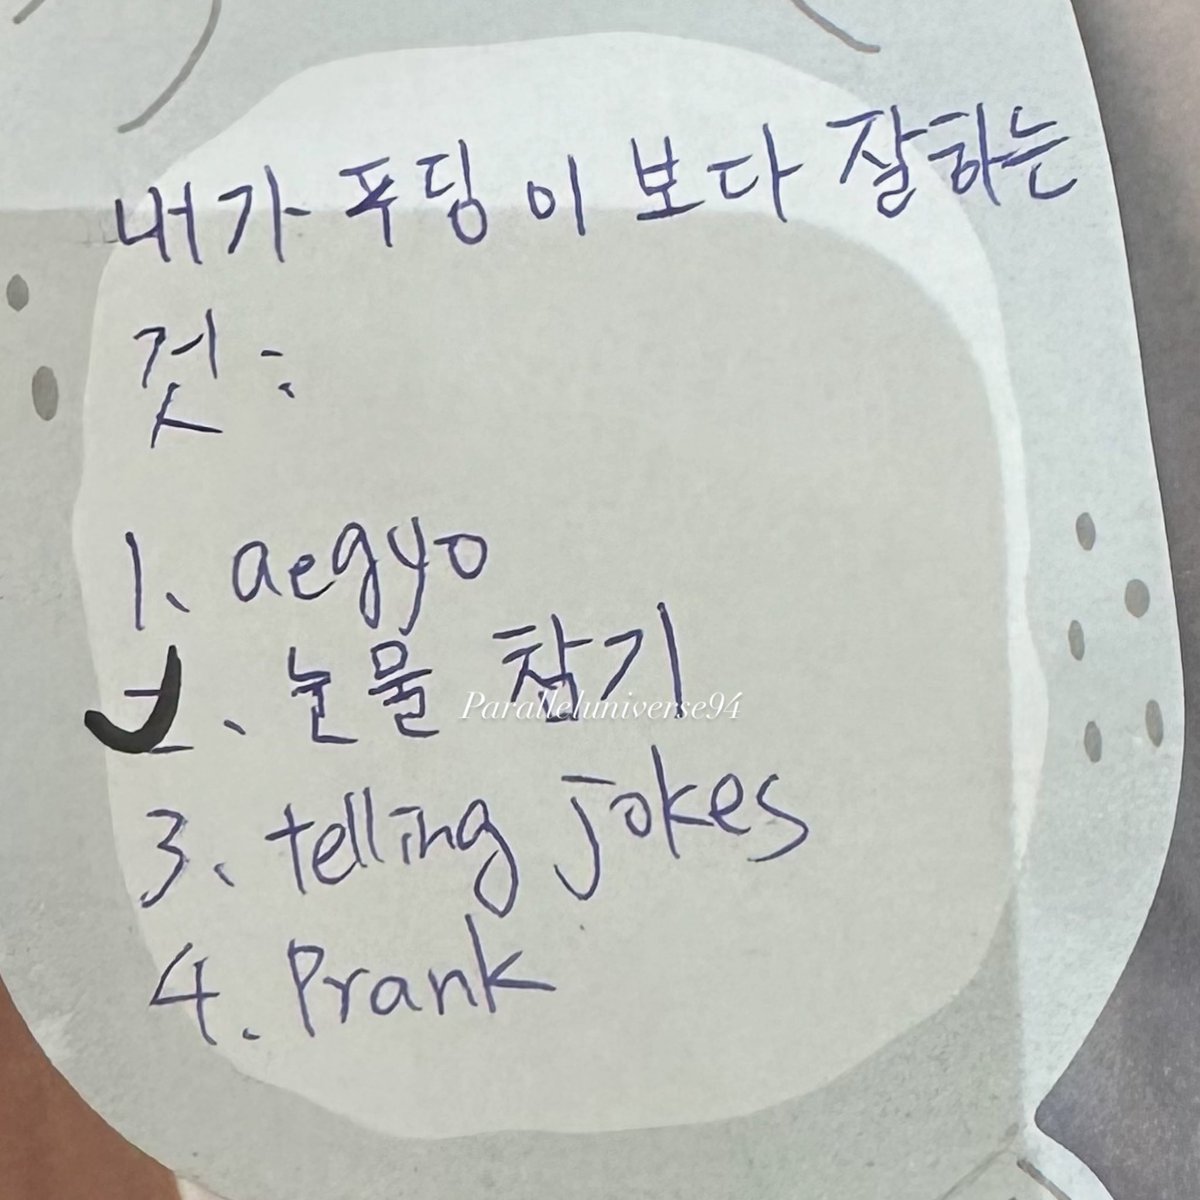 내가 푸딩이 보다 잘하는
것:
1. aegyo
2. 눈물 참기
Paralleluniverse94
3. telling jokes
4. Prank